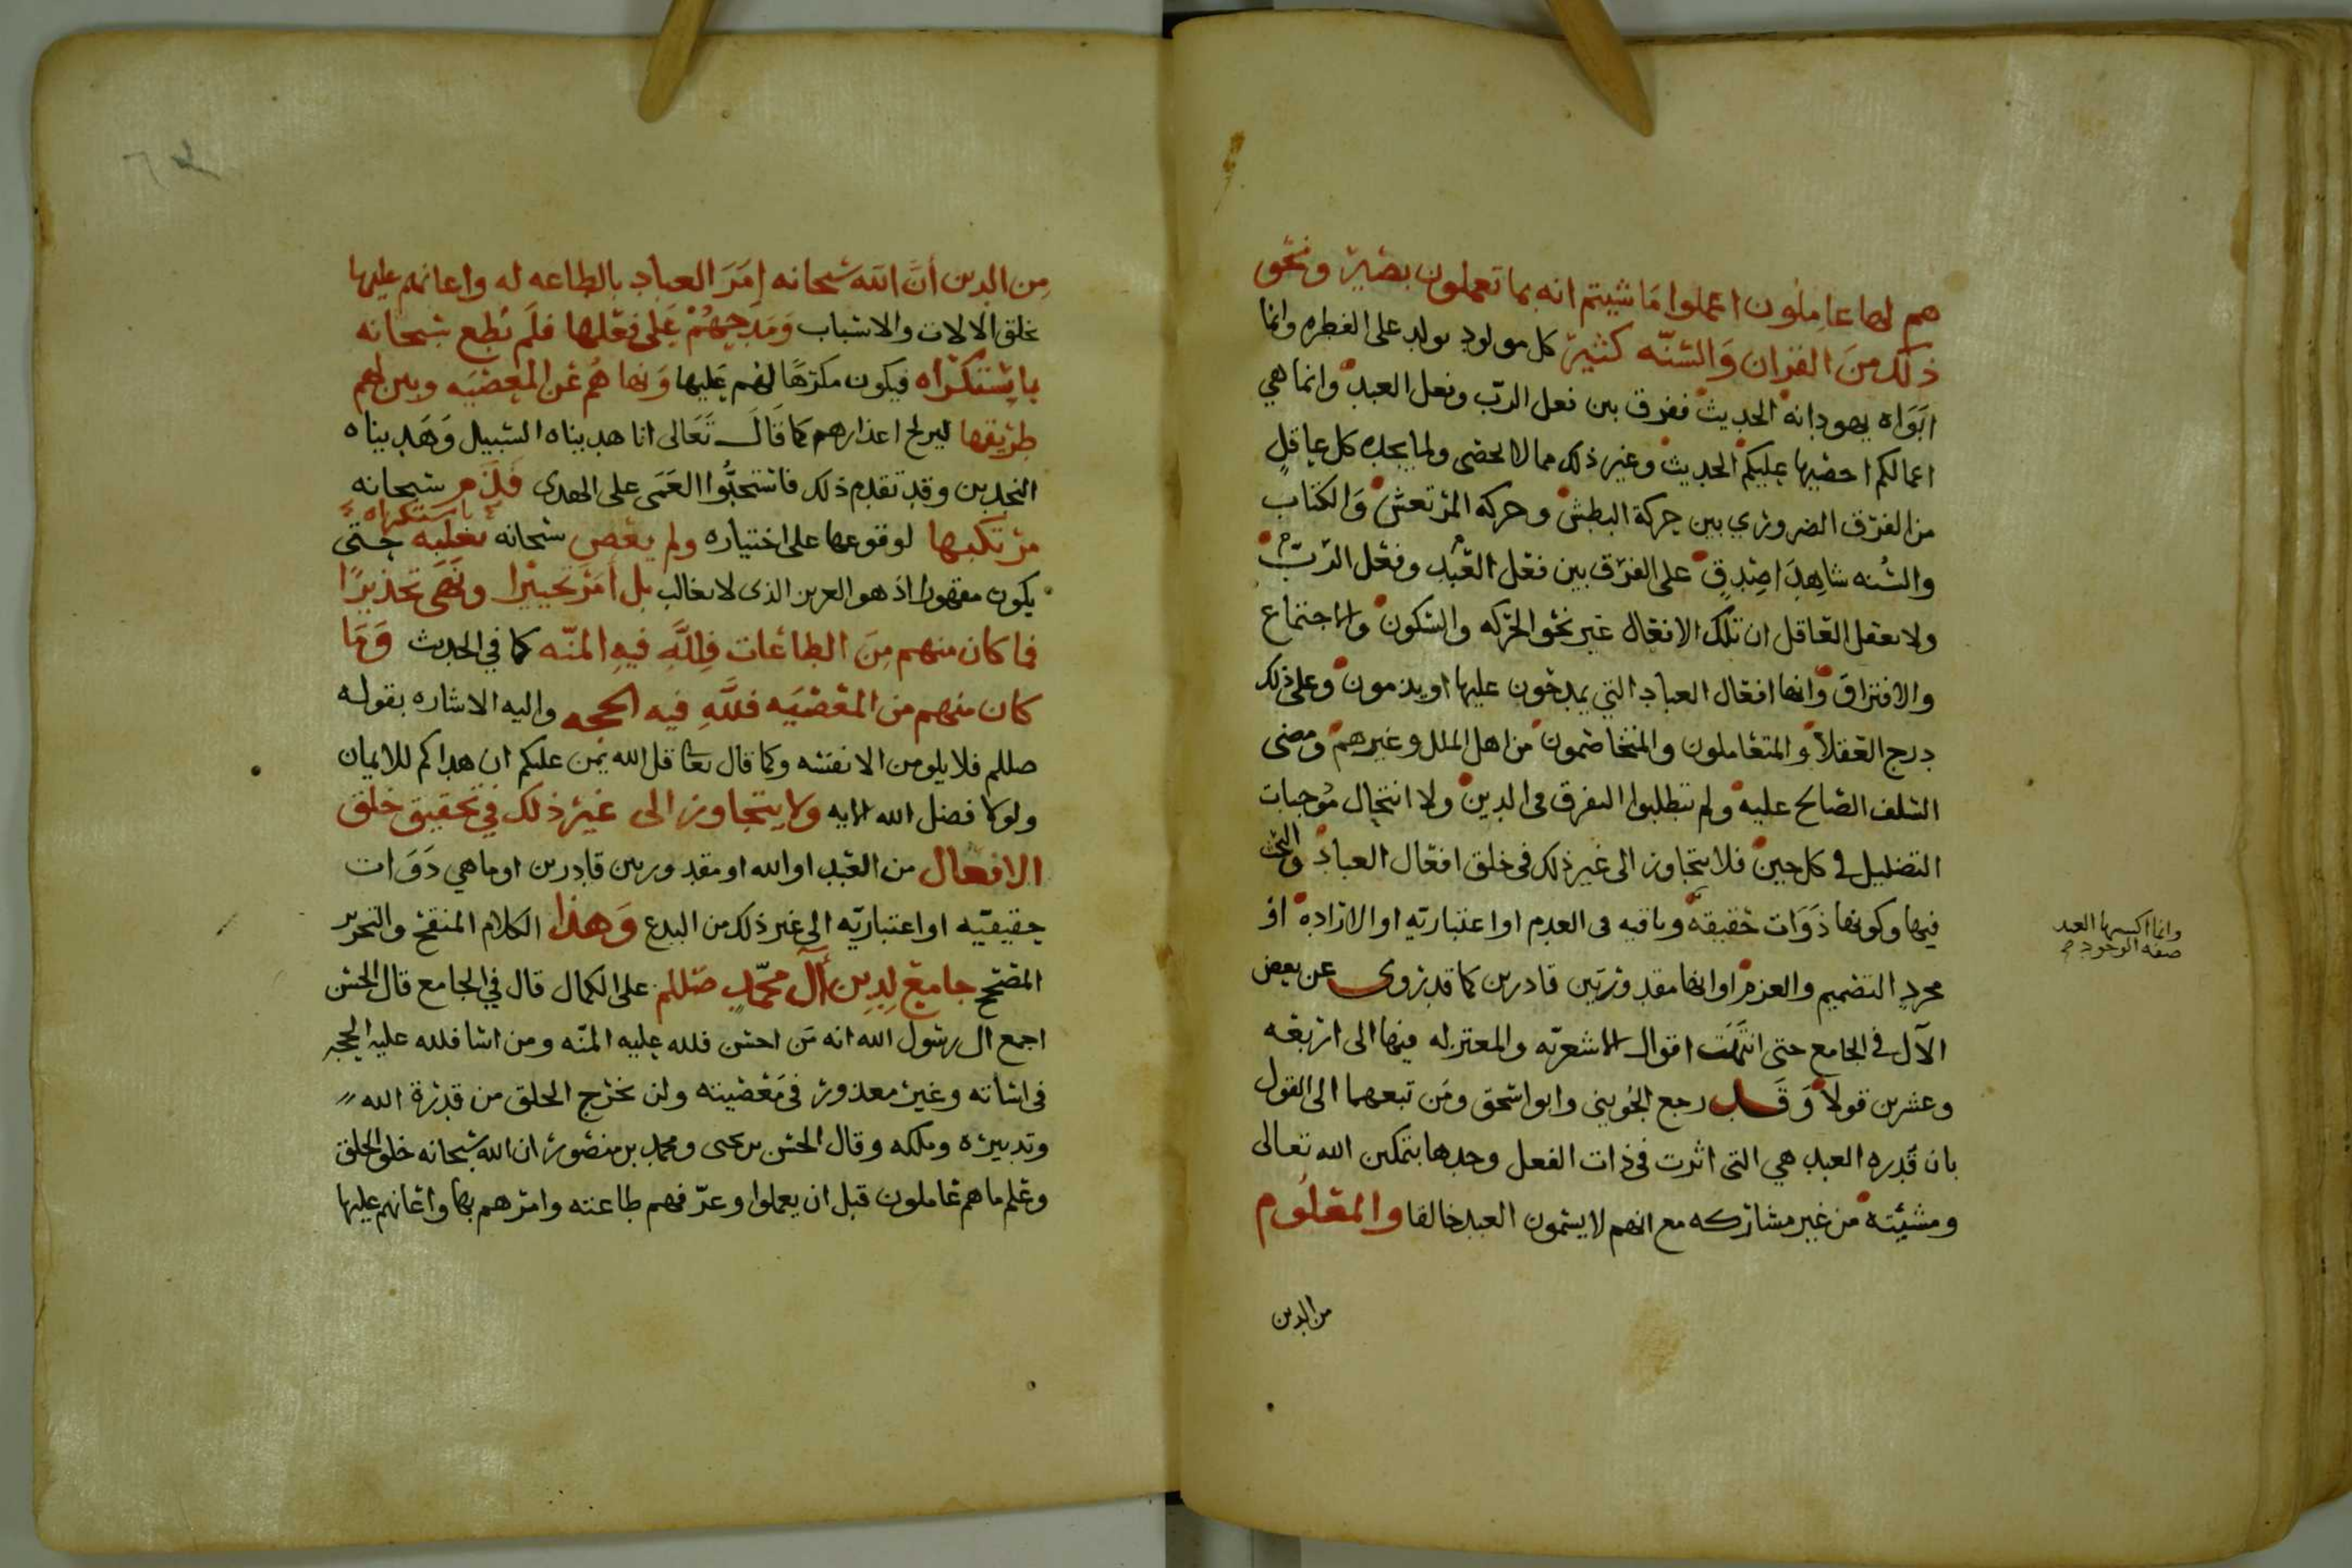 هم لها عاملون اعملوا ما شيتم انه بما تعملون بصير ونحو
ذلك من القران والسنّه كثير كل مولود يولد على الفطره وانما
ابواه يهودانه الحديث ففرق بين فعل الربّ وفعل العبد وانما هي
اعمالكم احصيها عليكم الحديث وغير ذلك مما لا يحصى ولما يجده كل عاقل
من الفرق الضروري بين حركة البطش وحركة المرتعش والكتاب
والسنه شاهدا صدقٍ على الفرق بين فعل العبد وفعل الربّ
ولا يعقل العاقل ان تلك الافعال غير نحو الحركه والسكون والاجتماع
والافتراق وانها افعال العباد التي يمدحون عليها او يذمون وعلى ذلك
درج العقلا والمتعاملون والمتخاصمون من اهل الملل وغيرهم ومضى
السلف الصالح عليه ولم يتطلبوا التفرق في الدين ولا انتحال موجبات
التضليل في كل حين فلا يتجاوز الى غير ذلك في خلق افعال العباد والبحث
فيها وكونها ذوات حقيقة وباقيه في العدم او اعتباريه او الاراده او
وانما اكسبها العبد
صفه الوجود
مجرد التصميم والعزم او انها مقدورتين قادرين كما قد روى عن بعض
الآل في الجامع حتى انتهت اقوال الاشعريّه والمعتزله فيها الى اربعه
وعشرين قولا وقد رجع الجويني وابو اسحق ومن تبعهما الى القول
بان قدره العبد هي التي اثرت في ذات الفعل وحدها بتمكين الله تعالى
ومشيئته من غير مشاركه مع انهم لا يسمون العبد خالقا والمعلوم
من الدين
من الدين أنّ الله سبحانه امر العباد بالطاعه له واعانهم عليها
بخلق الالات والاسباب ومدحهم على فعلها فلم يُطع سبحانه
باستكراه فيكون مكرهًا لهم عليها ونهاهم عن المعصيه وبين لهم
طريقها ليريح اعذارهم كما قال تعالى انا هديناه السبيل وهديناه
النجدين وقد تقدم ذلك فاستحبّوا العمى على الهدى فلم سبحانه
باستكراه
مرتكبها لوقوعها على اختياره ولم يعص سبحانه بغلبه حتى
يكون مقهورا اذ هو العزيز الذي لا يغالب بل أمر تخييرا ونهى تحذيرًا
فما كان منهم من الطاعات فلله فيه المنّه كما في الحديث وما
كان منهم من المعصيه فلله فيه الحجه واليه الاشاره بقوله
صللم فلا يلومن الا نفسه وكما قال تعا قل الله يمن عليكم ان هداكم للايمان
ولولا فضل الله الايه ولا يتجاوز الى غير ذلك في تحقيق خلق
الافعال من العبد او الله او مقدور بين قادرين او ما هي ذوات
حقيقيّه او اعتباريّه الى غير ذلك من البدع وهذا الكلام المنقح والتحرير
المصحح جامع لدين آل محمّد صللم على الكمال قال في الجامع قال الحسن
اجمع ال رسول الله انه من احسن فلله عليه المنّه ومن اسا فلله عليه الحجه
في اساته وغير معذور في معصيته ولن نخرج الخلق من قدرة الله
وتدبيره وملكه وقال الحسن بن يحيى ومحمد بن منصور ان الله سبحانه خلق الخلق
وعلم ما هم عاملون قبل ان يعملوا وعرّفهم طاعته وامرهم بها واعانهم عليها